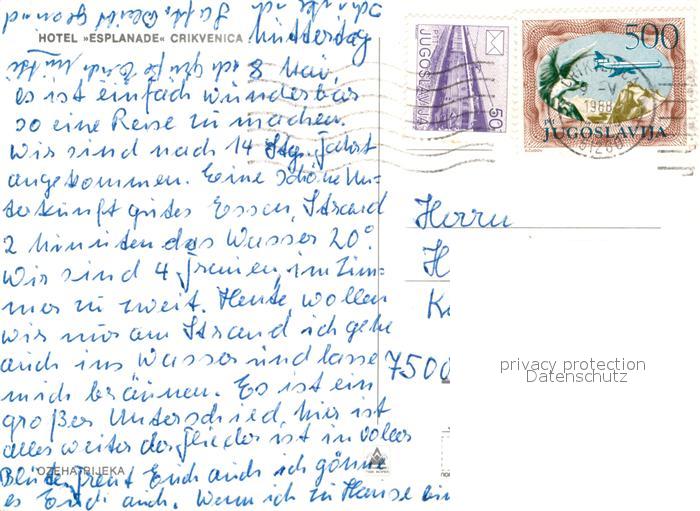 HOTEL »ESPLANADE« CRIKVENICA
Muttertag
8 Mai,
es ist einfach wunderbar
so eine Reise zu machen.
Wir sind nach 14 Stg. Fahrt
angekommen. Eine schöne Un=
terkunft gutes Essen, Strand
2 Minuten das Wasser 20°.
Wir sind 4 Frauen, im Zim=
mer zu zweit. Heute wollen
wir nur am Strand ich gehe
auch ins Wasser und lasse
mich bräunen. Es ist ein
großer Unterschied, hier ist
alles weiter der Flieder ist in voller
Blüte, freut Euch auch ich gönne
es Euch auch. Wenn ich zu Hause bin
OZEHA RIJEKA
50
JUGOSLAVIJA
500
PTT
JUGOSLAVIJA
1988
51260
Herrn
H
K
7500
privacy protection
Datenschutz